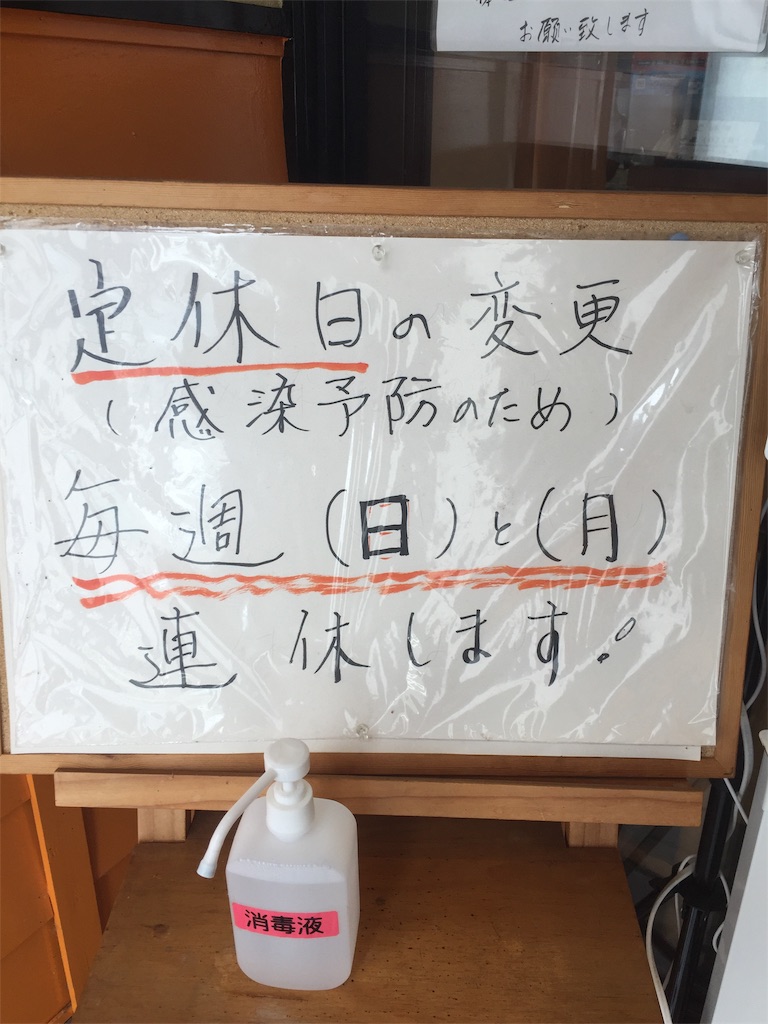 お願い致します
定休日の変更
(感染予防のため)
毎週(日)と(月)
連休します!
消毒液